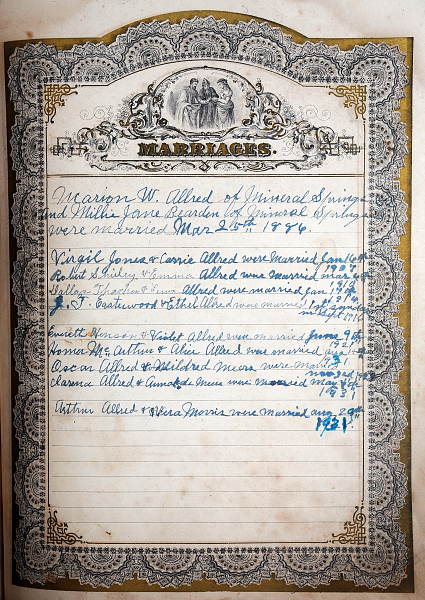 MARRIAGES.
Marion W. Allred of Mineral Springs
and Millie Jane Bearden of Mineral Springs
were married Mar 25th 1886.
Virgil Jones & Carrie Allred were Married Jan 16th
1907
Robert & Emma Allred were married mar
Allred were married Jan
1914
J. T. Easterwood & Ethel Allred were married 1st Sunday
in Sept
Everett Henson & Violet Allred were married June 9th
1921
Homer McArthur & Alice Allred was married aug
Oscar Allred & Mildred Mears were married
Clarence Allred & Mears were married may
1931
Arthur Allred & Vera Morris were married aug 29th
1921